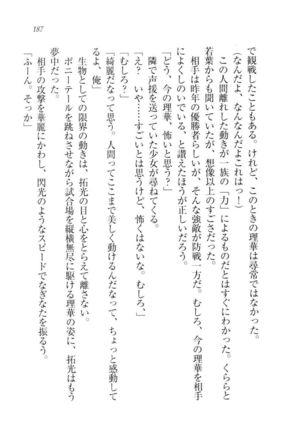 187
で観戦したこともある。けれど、このときの理華は尋常ではなかった。
（なんだよ、なんなんだよこれはっ！）
この人間離れした動きが一族の「力」によるものだとはすぐにわかった。くららと
若葉からも聞いていたが、想像以上のすごさだった。
相手は昨年の優勝者らしいが、そんな強敵が防戦一方だ。むしろ、今の理華を相手
によくしのいでいる、と讃えたほうが正しいだろう。
「どう、今の理華、怖いと思う？」
隣で声援を送っていた少女が尋ねてくる。
「え？　いや……すごいとは思うけど、怖くはないな。むしろ、」
「むしろ？」
「綺麗だなって思う。人間ってここまで美しく動けるんだなって、ちょっと感動して
るよ、俺」
生物としての限界の動きは、拓光の目と心をとらえて離さない。
ポニーテールを跳ねさせながら試合場を縦横無尽に駆け回る理華の姿に、拓光はもう
夢中だった。
相手の攻撃を華麗にかわし、閃光のようなスピードでなぎなたを振るう。
「ふーん。そっか」